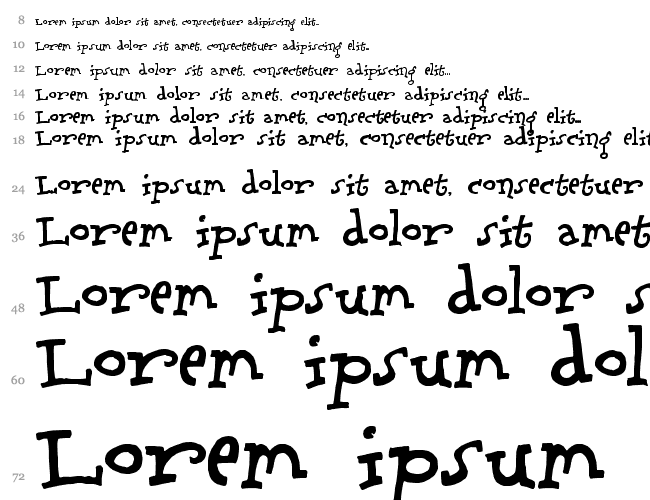 8 Lorem ipsum dolor sit amet, consectetuer adipiscing elit...
10 Lorem ipsum dolor sit amet, consectetuer adipiscing elit...
12 Lorem ipsum dolor sit amet, consectetuer adipiscing elit...
14 Lorem ipsum dolor sit amet, consectetuer adipiscing elit...
16 Lorem ipsum dolor sit amet, consectetuer adipiscing elit...
18 Lorem ipsum dolor sit amet, consectetuer adipiscing elit
24 Lorem ipsum dolor sit amet, consectetuer
36 Lorem ipsum dolor sit amet
48 Lorem ipsum dolor s
60 Lorem ipsum dol
72 Lorem ipsum